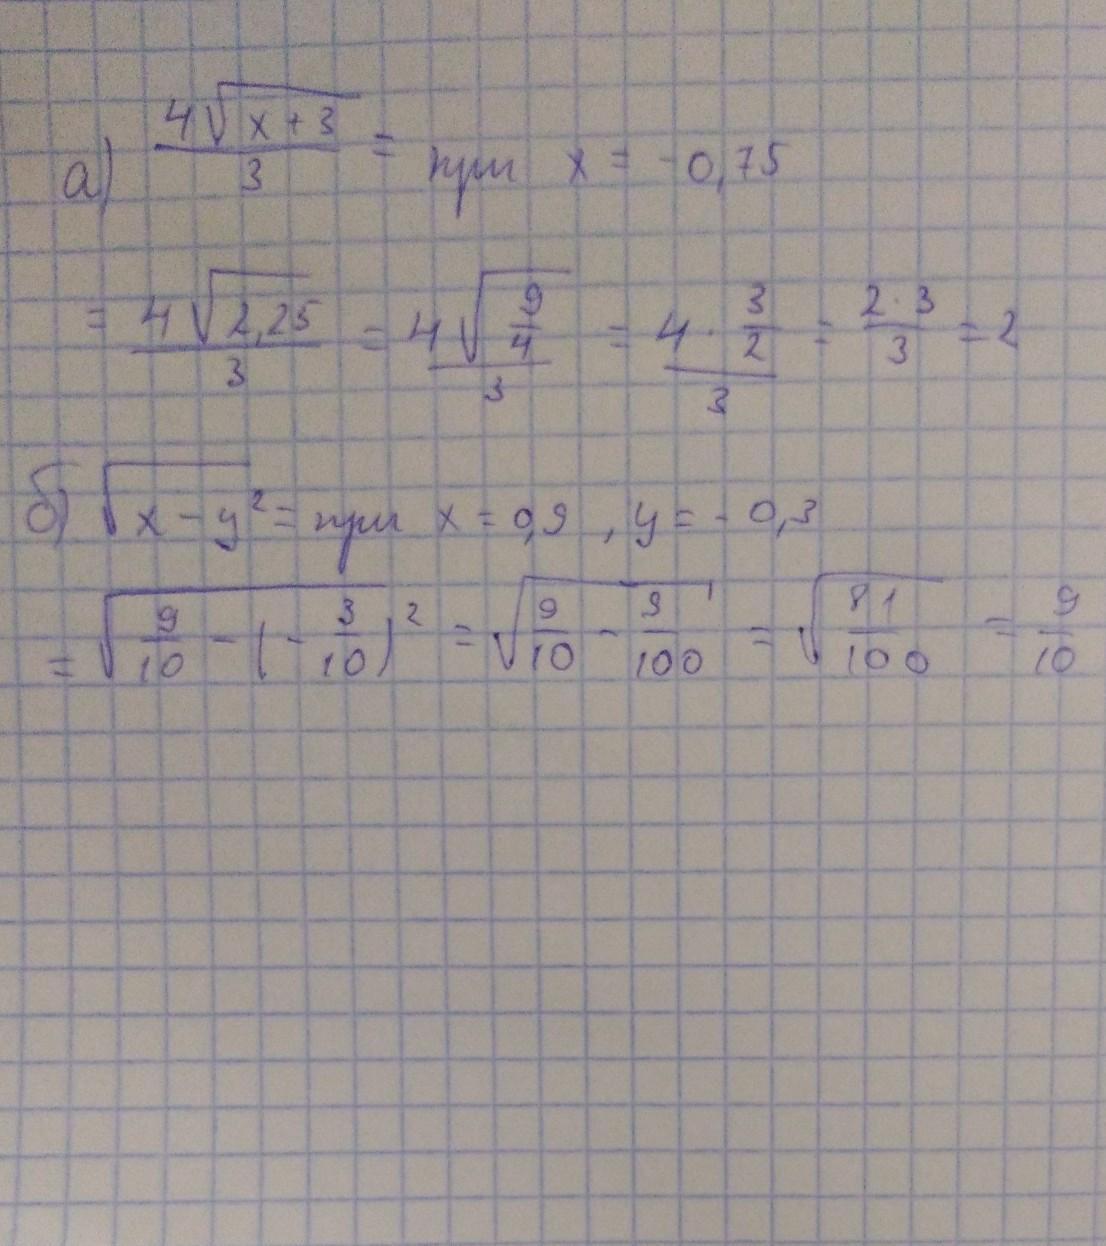 а) 4√(x + 3) / 3 = при x = -0,75
= 4√(2,25) / 3 = 4√(9/4) / 3 = 4 · 3/2 / 3 = 2·3 / 3 = 2
б) √(x - y²) = при x = 0,9 , y = - 0,3
= √(9/10 - (- 3/10)²) = √(9/10 - 9/100) = √(81/100) = 9/10